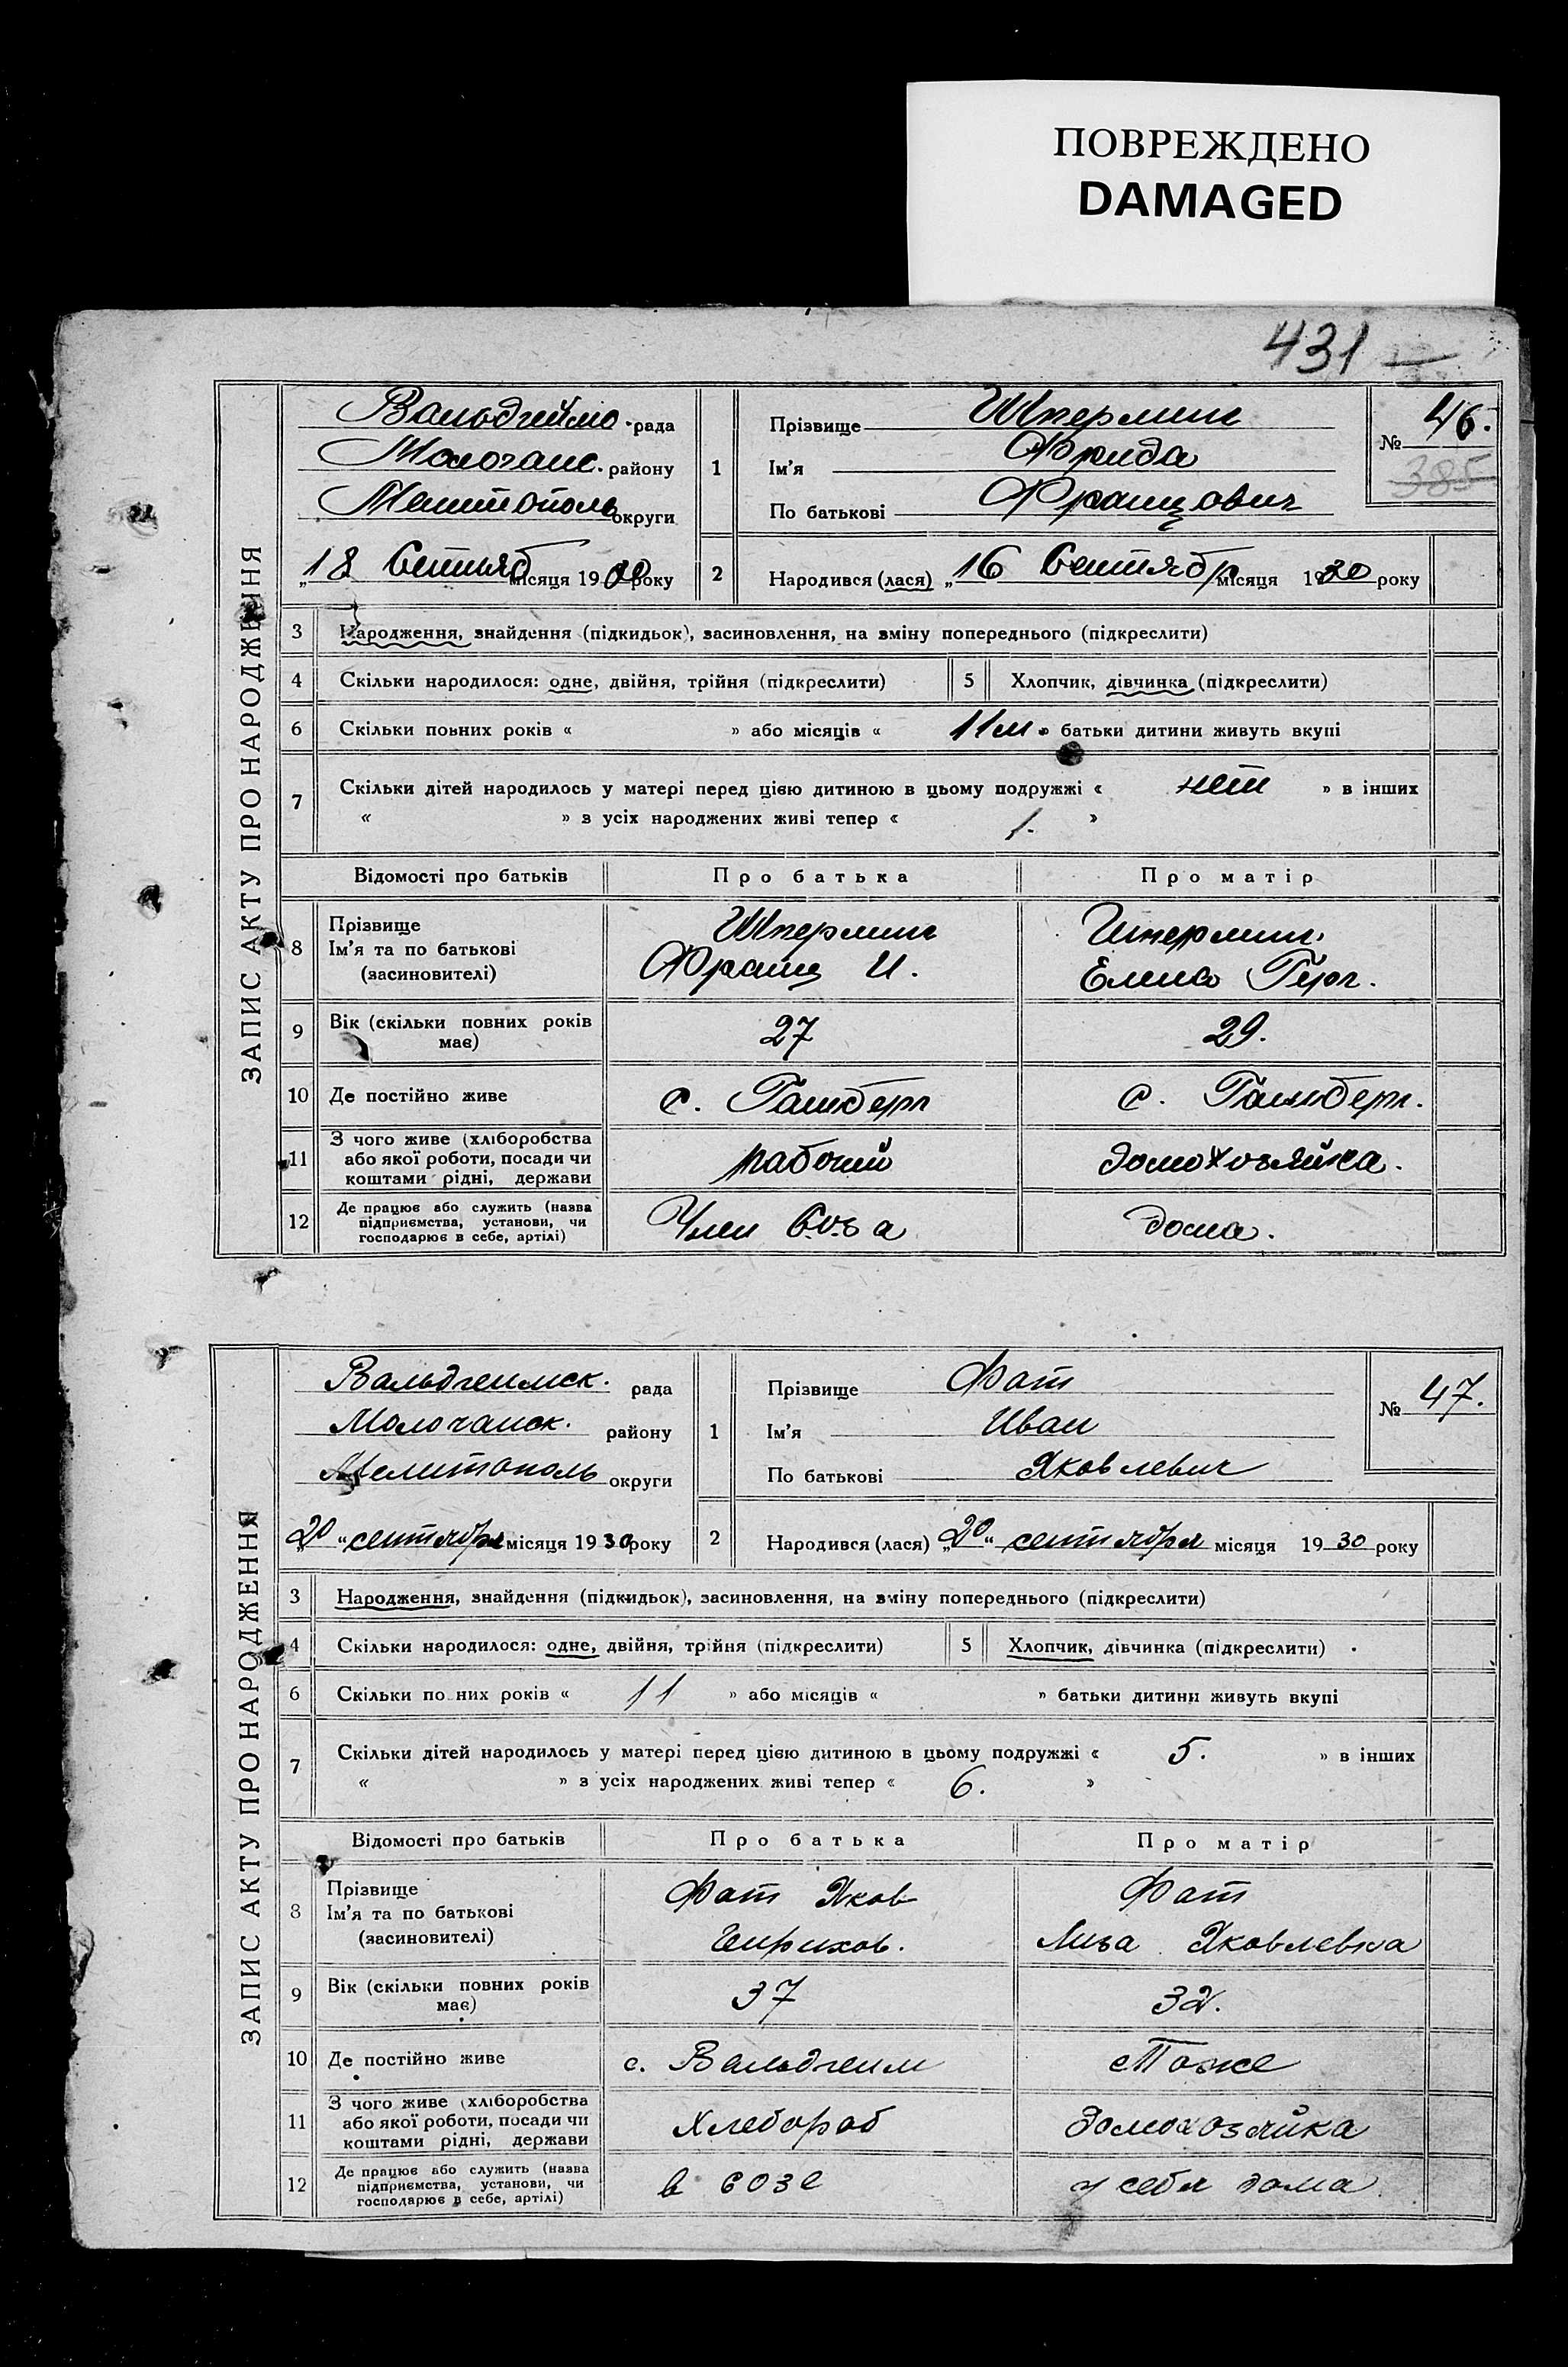 ПОВРЕЖДЕНО
DAMAGED
431
ЗАПИС АКТУ ПРО НАРОДЖЕННЯ
Вальдгеймо рада
Молочанс. району
Мелитополь округи
„18 Сентяб місяця 1930 року
1 Прізвище Шперлинг
Ім'я Фрида
По батькові Францович
№ 46.
385
2 Народився (лася) „16 Сентябр місяця 1930 року
3 Народження, знайдення (підкидьок), засиновлення, на зміну попереднього (підкреслити)
4 Скільки народилося: одне, двійня, трійня (підкреслити) 5 Хлопчик, дівчинка (підкреслити)
6 Скільки повних років « » або місяців « 11 м » батьки дитини живуть вкупі
7 Скільки дітей народилось у матері перед цією дитиною в цьому подружжі « нет » в інших
« » з усіх народжених живі тепер « 1. »
Відомості про батьків Про батька Про матір
8 Прізвище Шперлинг Шперлинг.
Ім'я та по батькові Франц И. Елена Герг.
(засиновителі)
9 Вік (скільки повних років має) 27 29.
10 Де постійно живе с. с.
11 З чого живе (хліборобства
або якої роботи, посади чи рабочий домохозяйка.
коштами рідні, держави
12 Де працює або служить (назва
підприємства, установи, чи Член Соза дома.
господарює в себе, артілі)
ЗАПИС АКТУ ПРО НАРОДЖЕННЯ
Вальдгеимск. рада
Молочанск. району
Мелитополь округи
„20 “ сентября місяця 1930 року
1 Прізвище Фаст
Ім'я Иван
По батькові Яковлевич
№ 47.
2 Народився (лася) „20“ сентября місяця 1930 року
3 Народження, знайдення (підкидьок), засиновлення, на зміну попереднього (підкреслити)
4 Скільки народилося: одне, двійня, трійня (підкреслити) 5 Хлопчик, дівчинка (підкреслити)
6 Скільки по них років « 11 » або місяців « » батьки дитини живуть вкупі
7 Скільки дітей народилось у матері перед цією дитиною в цьому подружжі « 5. » в інших
« » з усіх народжених живі тепер « 6. »
Відомості про батьків Про батька Про матір
8 Прізвище Фаст Яков Фаст
Ім'я та по батькові Гирихов. Лиза Яковлевна
(засиновителі)
9 Вік (скільки повних років має) 37 32.
10 Де постійно живе с. Вальдгеим Тоже
11 З чого живе (хліборобства
або якої роботи, посади чи Хлебороб домохозяйка
коштами рідні, держави
12 Де працює або служить (назва
підприємства, установи, чи в созе у себя дома
господарює в себе, артілі)